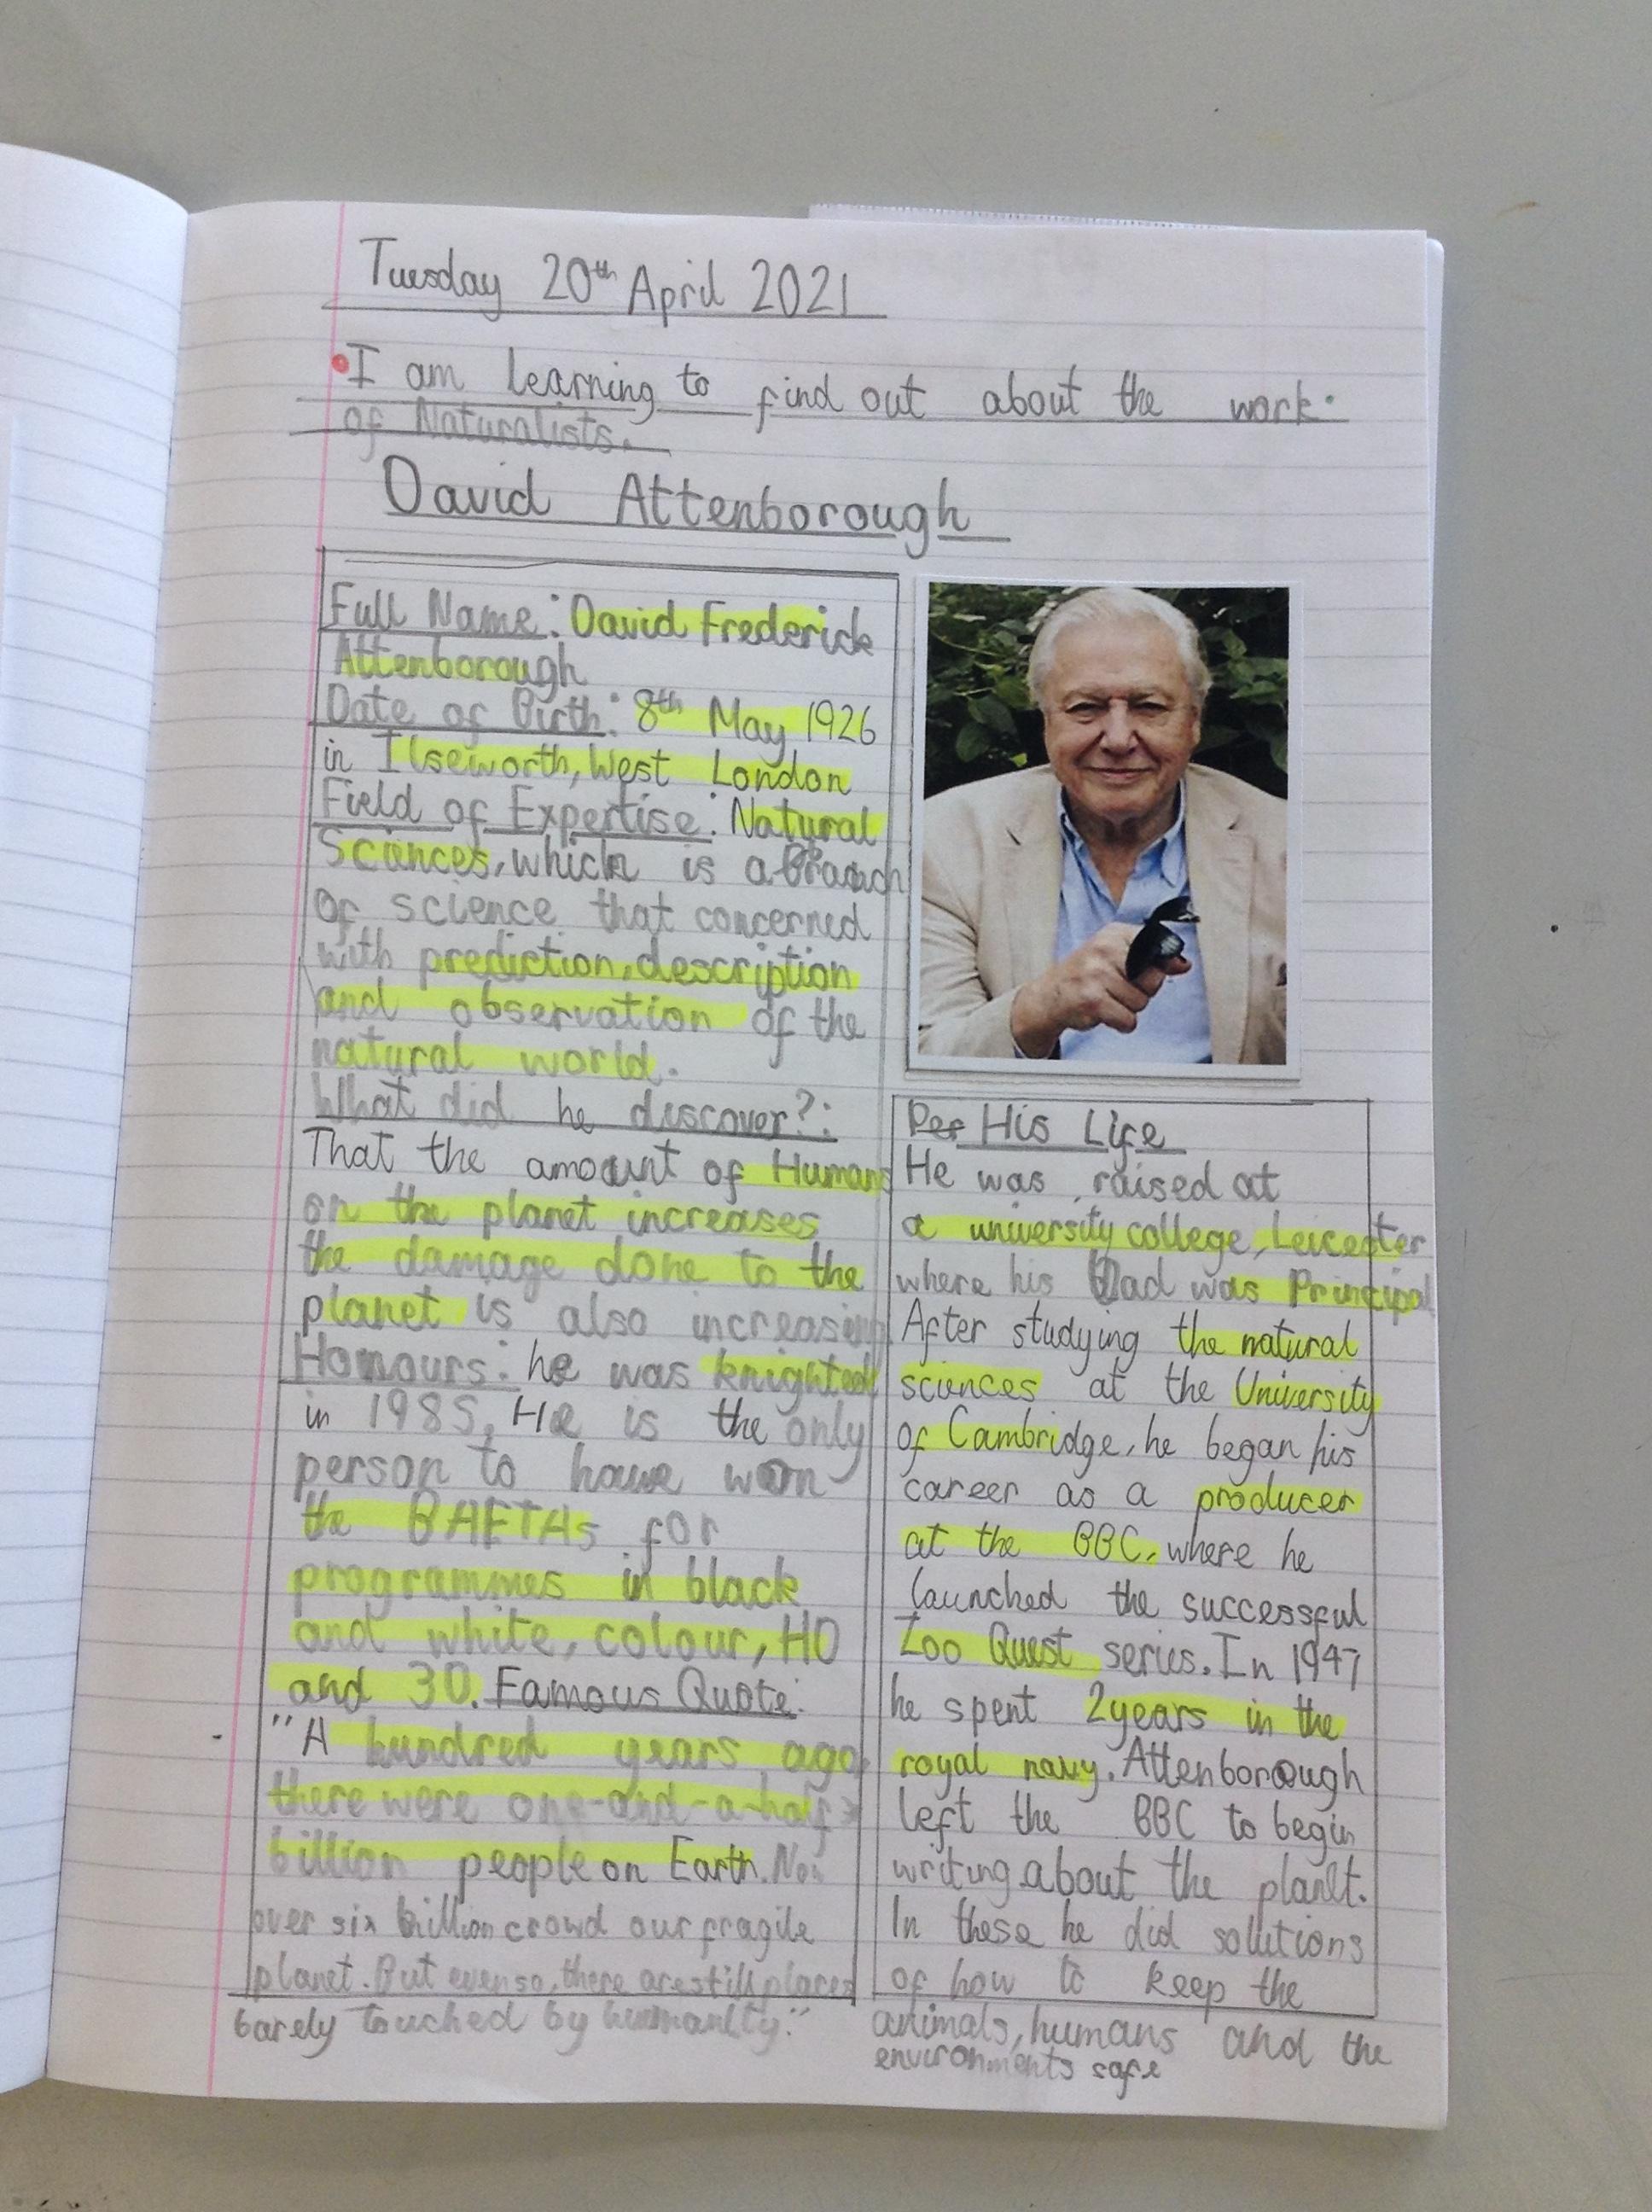 Tuesday 20th April 2021
I am learning to find out about the work
of Naturalists.
David Attenborough
Full Name: David Frederick
Attenborough
Date of Birth: 8th May 1926
in Ilseworth, West London
Field of Expertise: Natural
Sciences, which is a branch
of science that concerned
with prediction, description
and observation of the
natural world.
What did he discover?:
That the amount of Humans
on the planet increases
the damage done to the
planet is also increasing.
Honours: he was knighted
in 1985, He is the only
person to have won
the BAFTAs for
programmes in black
and white, colour, HD
and 3D. Famous Quote:
"A hundred years ago
there were one-and-a-half
billion people on Earth. Now
over six billion crowd our fragile
planet. But even so, there are still places
barely touched by humanity."
Per His Life
He was raised at
a university college, Leicester
where his Dad was Principal
After studying the natural
sciences at the University
of Cambridge, he began his
career as a producer
at the BBC, where he
launched the successful
Zoo Quest series. In 1947
he spent 2years in the
royal navy. Attenborough
left the BBC to begin
writing about the planet.
In these he did solutions
of how to keep the
animals, humans and the
environments safe